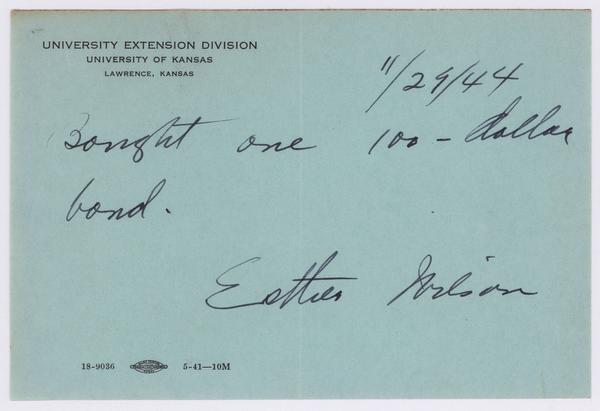 UNIVERSITY EXTENSION DIVISION
UNIVERSITY OF KANSAS
LAWRENCE, KANSAS
11/29/44
Bought one 100 - dollar
bond.
Esther Wilson
18-9036 5-41—10M